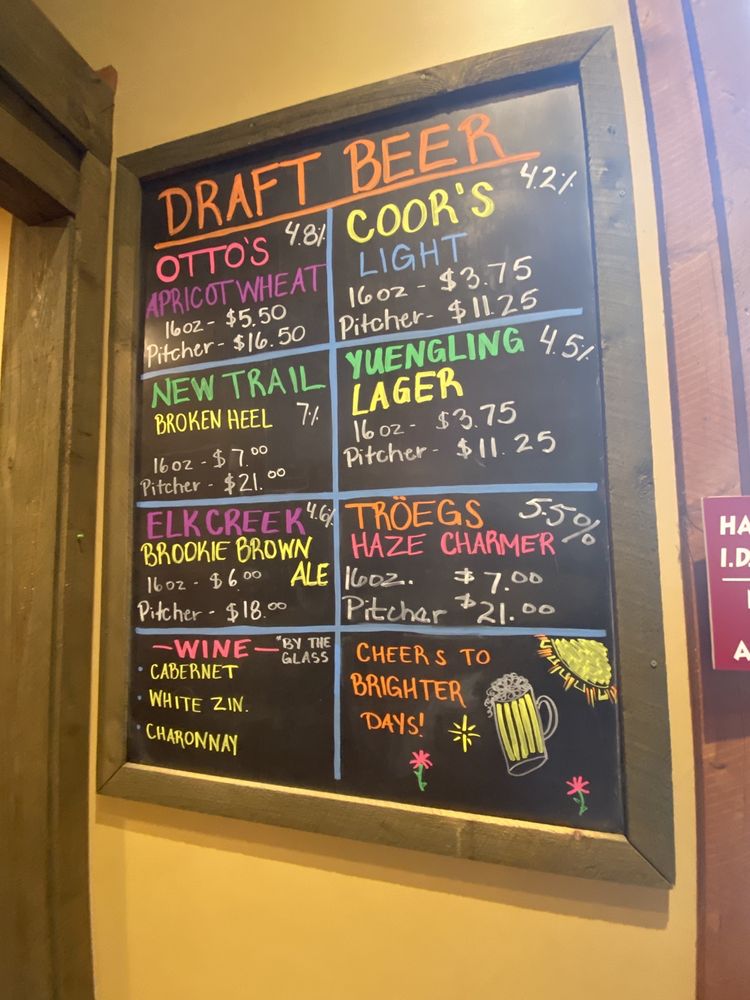 DRAFT BEER
OTTO'S 4.8%
APRICOT WHEAT
16oz - $5.50
Pitcher - $16.50
COOR'S 4.2%
LIGHT
16oz - $3.75
Pitcher - $11.25
NEW TRAIL
BROKEN HEEL 7%
16oz - $7.00
Pitcher - $21.00
YUENGLING 4.5%
LAGER
16oz - $3.75
Pitcher - $11.25
ELK CREEK 4.6%
BROOKIE BROWN
ALE
16oz - $6.00
Pitcher - $18.00
TRÖEGS 5.5%
HAZE CHARMER
16oz. $7.00
Pitcher $21.00
-WINE- "BY THE
GLASS
• CABERNET
• WHITE ZIN.
• CHARONNAY
CHEERS TO
BRIGHTER
DAYS!
HA
I.D.
A